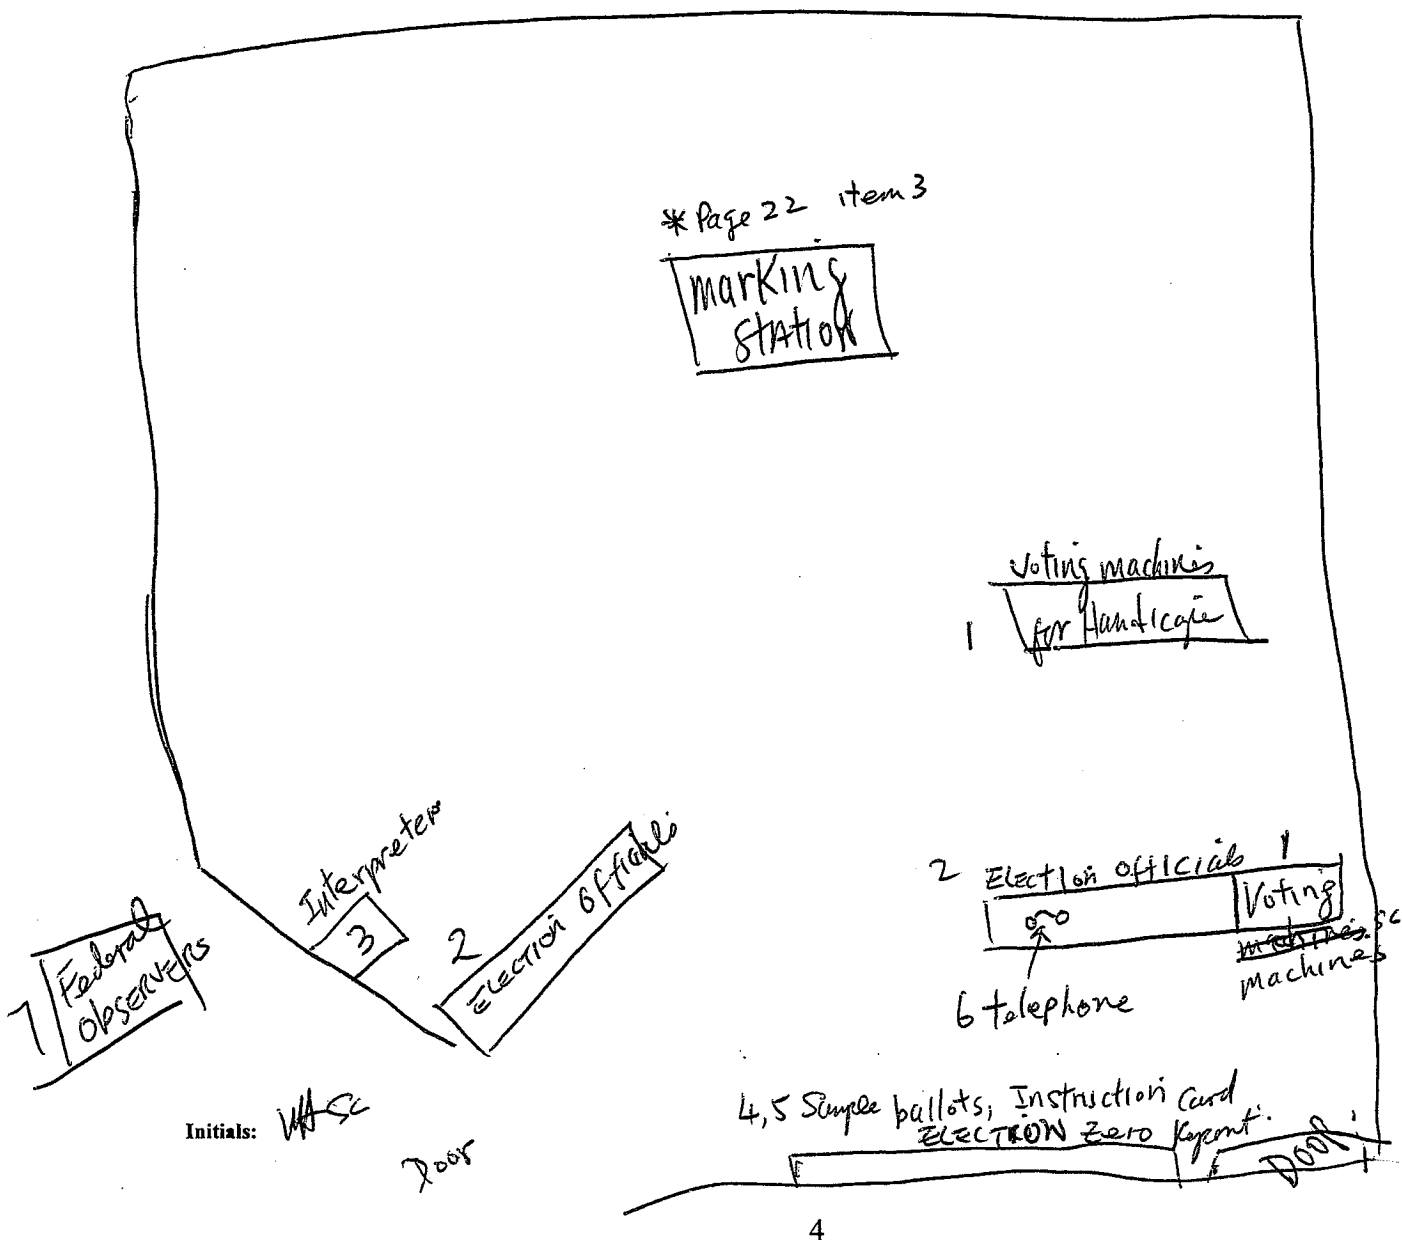 *Page 22 item 3
marking
station
Voting machines
1 for Handicape
Interpreter
3
2 Election Officials
2 Election Officials 1
Voting
machines. SC
machines
6 telephone
7 Federal
Observers
4,5 Sample ballots, Instruction Card
ELECTION Zero
Initials: SC
Door
Door
4